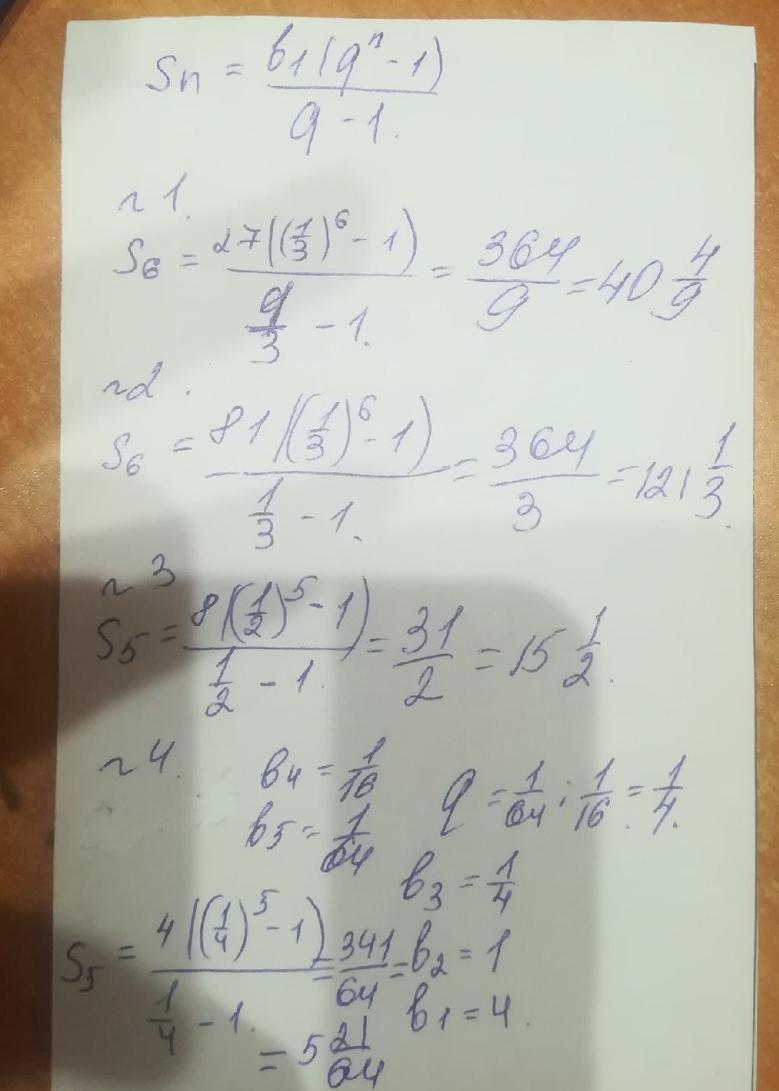 Sn = b1(q^n - 1) / q - 1.
~1.
S6 = 27((1/3)^6 - 1) / 1/3 - 1. = 364/9 = 40 4/9
~2.
S6 = 81((1/3)^6 - 1) / 1/3 - 1. = 364/3 = 121 1/3.
~3
S5 = 8((1/2)^5 - 1) / 1/2 - 1. = 31/2 = 15 1/2.
~4. b4 = 1/16
b5 = 1/64
q = 1/64 : 1/16 = 1/4.
b3 = 1/4
b2 = 1
b1 = 4.
S5 = 4((1/4)^5 - 1) / 1/4 - 1. = 341/64 =
= 5 21/64